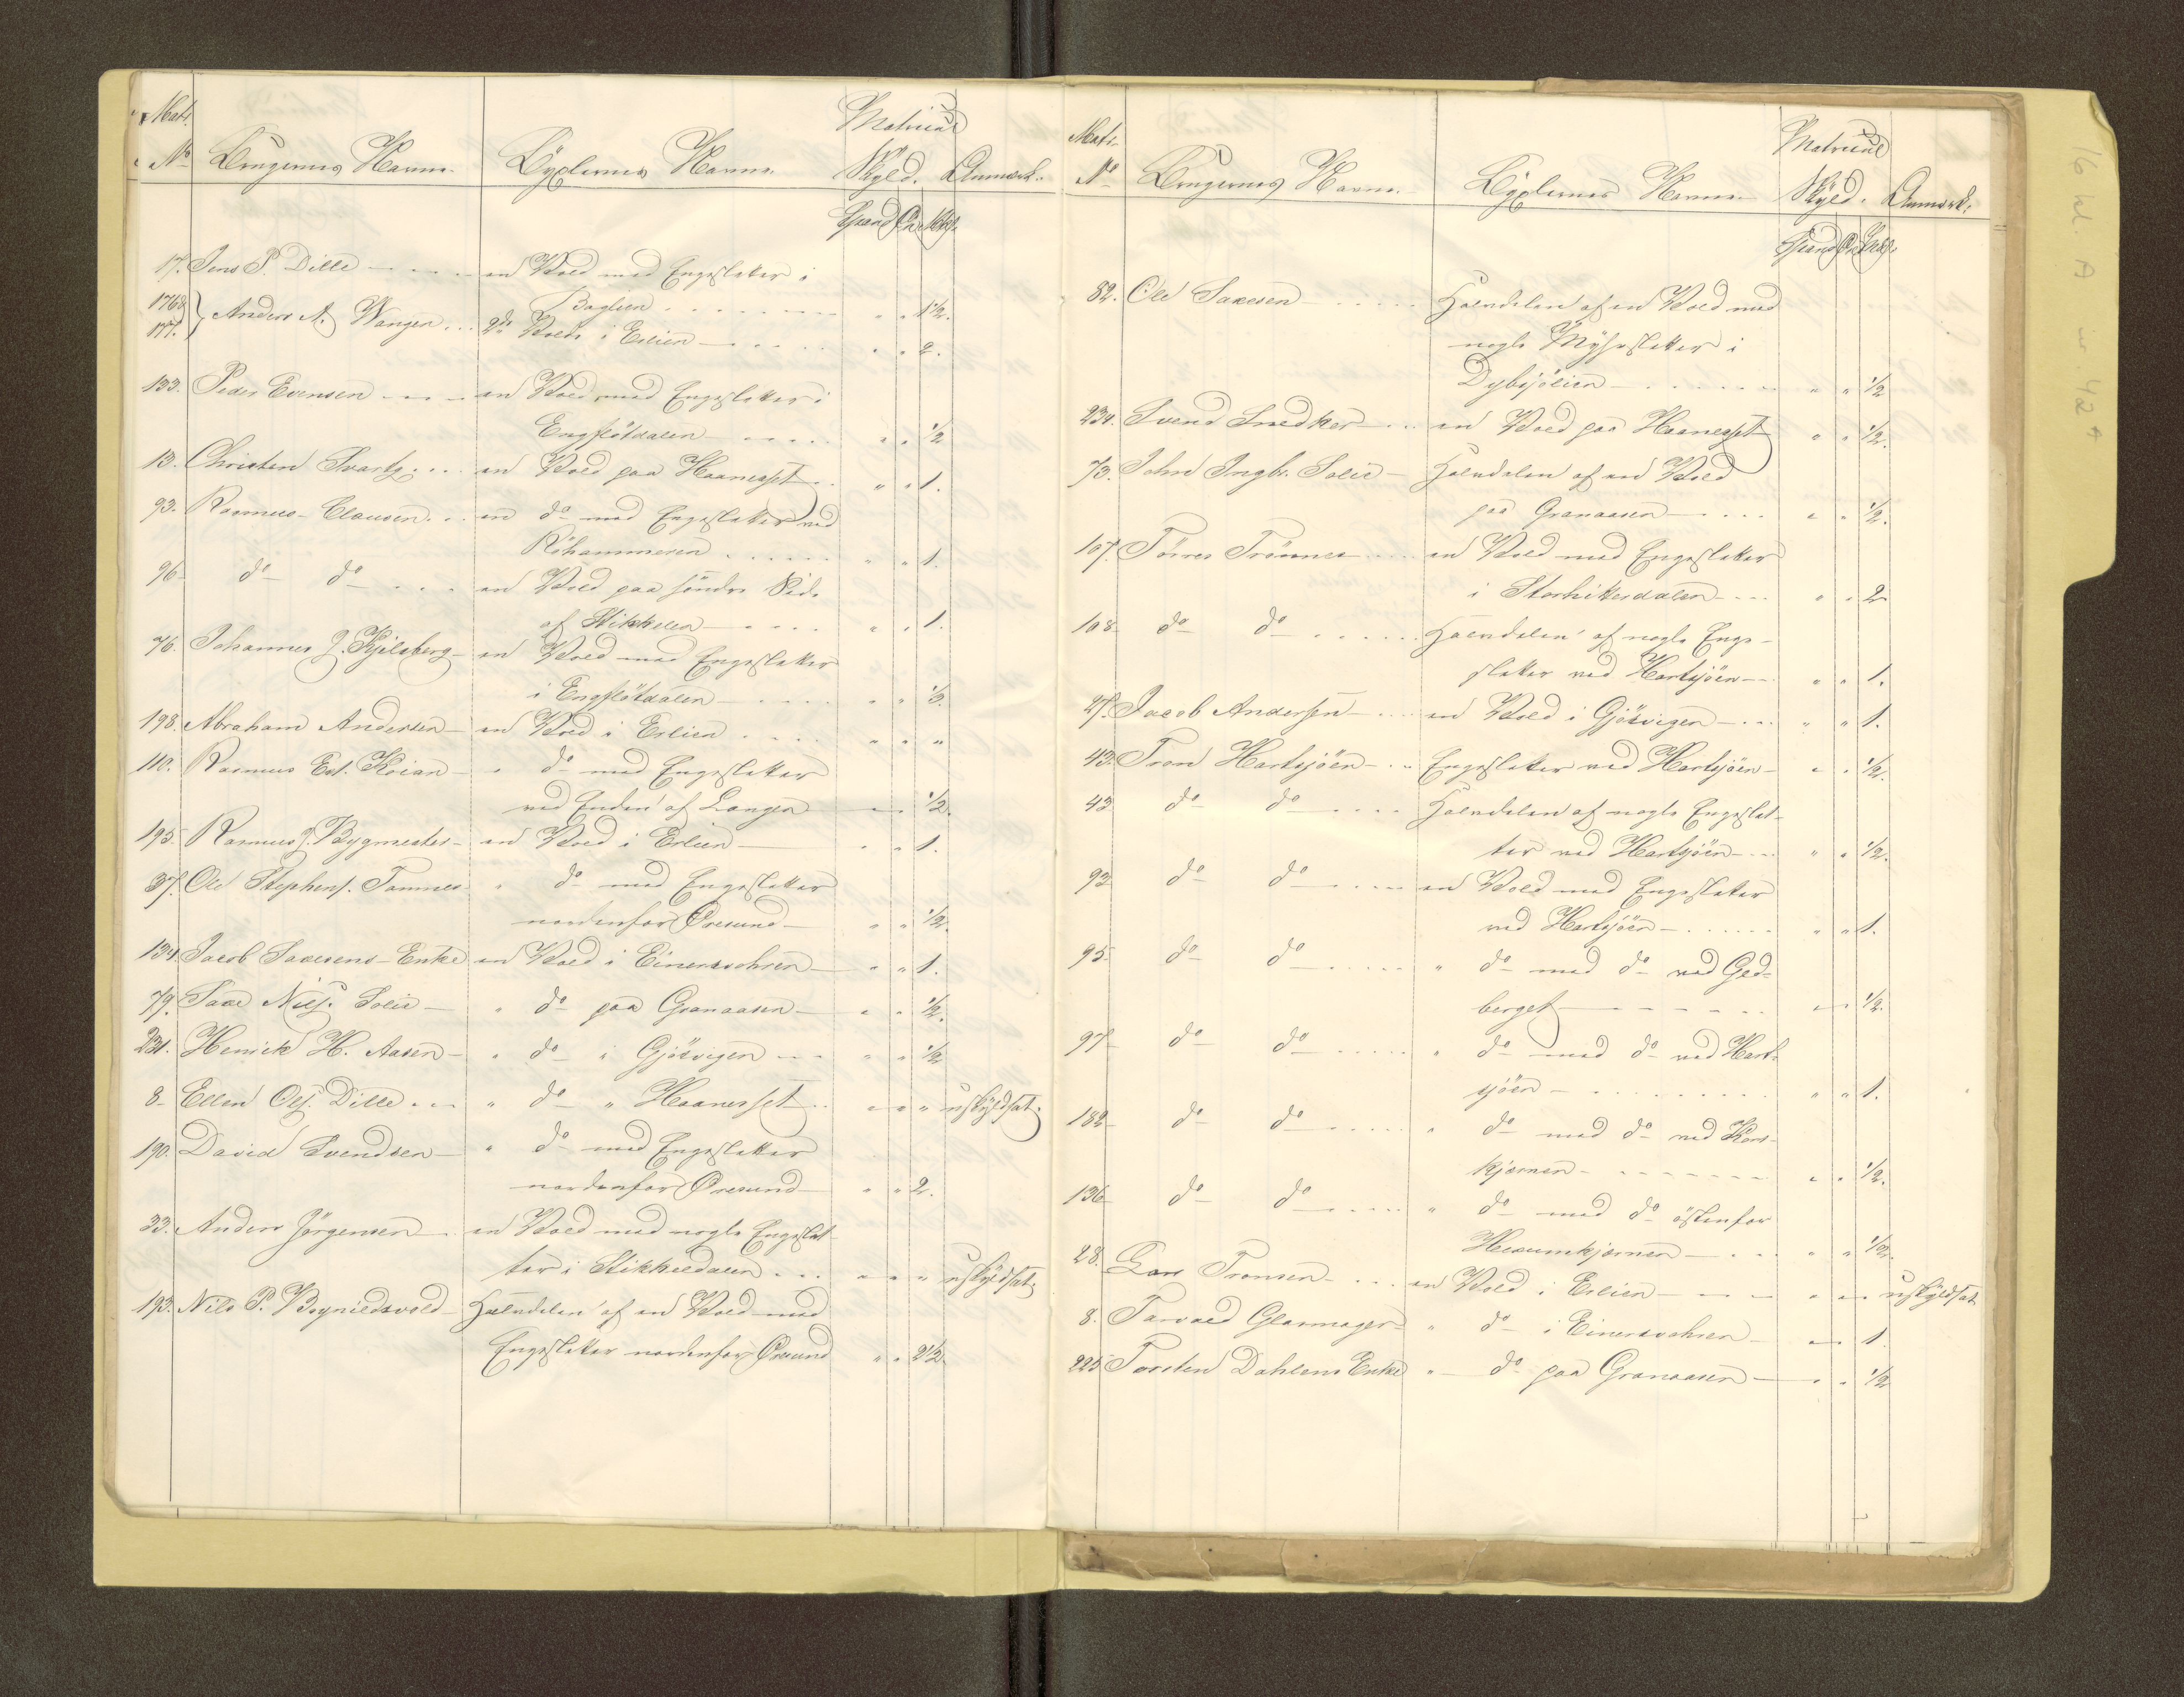 Matr.
No Brugernes Navne. Byxlernes Navne. Matricul
Skyld. Anmærk:
Spand Øre Mkl.
17. Jens P. Dille - - - en Vold med Engesletter i
Baglien - - - " " 1½.
176 & 177. Anders A. Wangen - - - 2de Volde i Erlien - - - " " 2.
133. Peder Evensen - - - en Vold med Engesletter i
Engflötdalen - - - " " ½
13. Christen Svartz - - - en Vold paa Haanesset - - " " 1.
93. Rasmus Clausen - - - en do med Engesletter ved
Röhammeren - - - " " 1.
96 do do - - - en Vold paa söndre Side
af Stikkelen - - - " " 1.
76. Johannes J. Kjelsberg - en Vold med Engesletter
i Engflötdalen - - - " " ½.
198. Abraham Andersen - en Vold i Erlien - - - " " "
110. Rasmus Est. Koian - " do med Engesletter
ved Enden af Langen - " " ½.
195. Rasmus J. Bygmester - en Vold i Erlien - " " 1.
37. Ole Stephens. Tamnes " do med Engesletter
nordenfor Öresund - " " ½.
134 Jacob Saxesens Enke en Vold i Einersvohlen - " " 1.
79. Saxe Nils. Solie - " do paa Granaasen - " " ½.
231. Henrick H. Aasen - " do i Gjösvigen - - " " ½
8. Ellen Ols. Dille - - - " do " Haanesset - - " " " uskyldsat.
190. David Svendsen - " do med Engesletter
nordenfor Öresund - " " 2.
33. Anders Jörgensen - en Vold med nogle Engeslet-
ter i Stikkeldalen - - - " " " uskyldsat.
193. Nils P. Brynildsvold - Halvdelen af en Vold med
Engesletter nordenfor Öresund " " 2½.
Matr.
No Brugernes Navne. Byxlernes Navne. Matricul
Skyld. Anmærk:
Spand Øre Mkl.
82. Ole Saxesen - - - Halvdelen af en Vold med
nogle Myhrsletter i
Dybsjölien - - - " " ½
234. Svend Snedker - - en Vold paa Haanesset " " ½.
73. John Ingbr. Solie - Halvdelen af en Vold
paa Granaasen - - - " " ½.
107. Törres Trönnes - - - en Vold med Engesletter
i Storhittersdalen - - - " " 2
108 do do - - - Halvdelen af nogle Enge-
sletter ved Hartsjöen - - " " 1.
27. Jacob Andersen - - - en Vold i Gjösvigen - - - " " 1.
43. Tron Hartsjöen - - Engesletter ved Hartsjöen - " " ½.
43 do do - - - Halvdelen af nogle Engeslet-
ter ved Hartsjöen - - " " ½.
93 do do - - - en Vold med Engesletter
ved Hartsjöen - - - " " 1.
95 do do - - - " do med do ved Ged-
berget - - - " " ½.
97 do do - - - " do med do ved Hart-
sjöen - - - " " 1.
182 do do - - - " do med do ved Kors-
kjernen - - - " " ½.
136 do do - - - " do med do östenfor
kjernen - - - " " ½.
28. Lars Tronsen - - - en Vold i Erlien - - - " " " uskyldsat
8. Tarvald Glarmager - " do i Einersvohlen - " " 1
225 Torsten Dahlens Enke " do paa Granaasen - " " ½
16 kl. A nr. 42 A